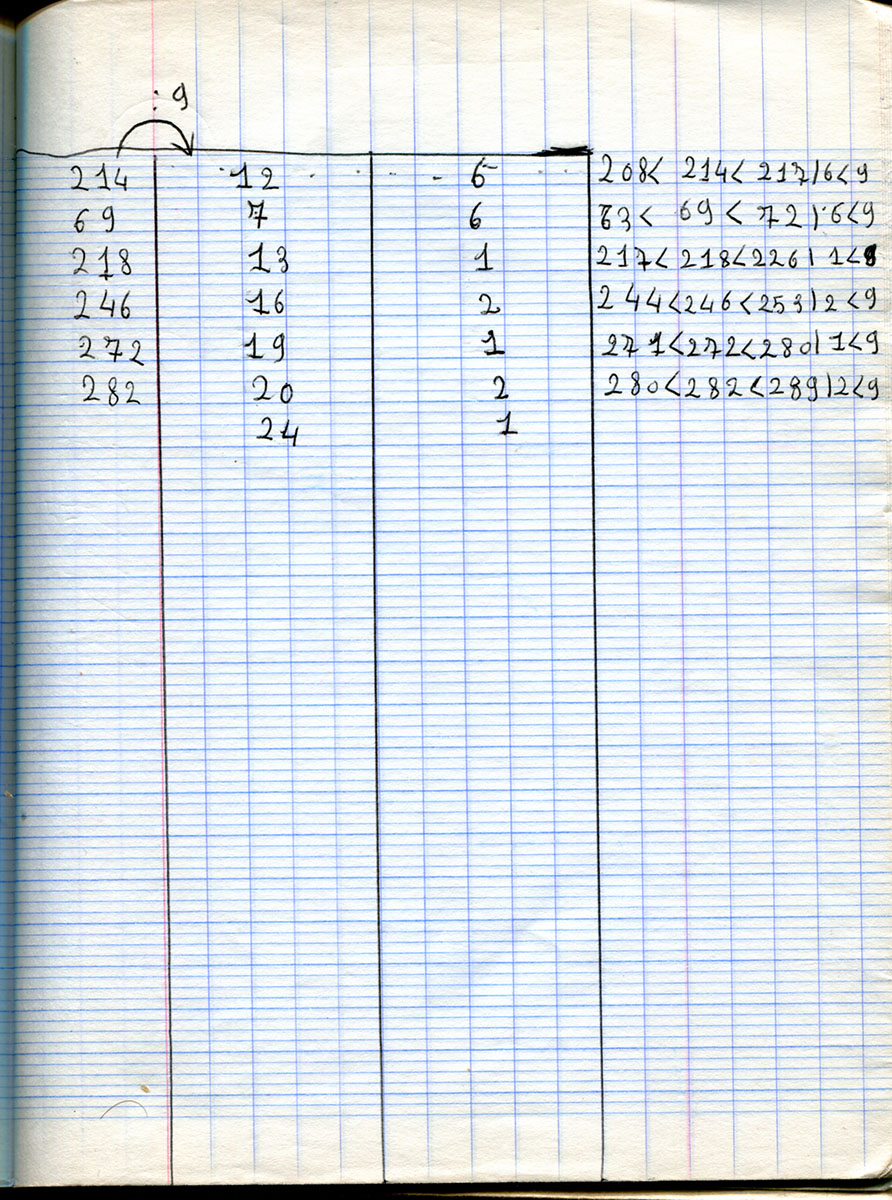 : 9
214 12 6 208< 214< 217|6<9
69 7 6 63< 69 < 72|6<9
218 13 1 217<218<226|1<9
246 16 2 244<246<253|2<9
272 19 1 271<272<280|1<9
282 20 2 280<282<289|2<9
24 1